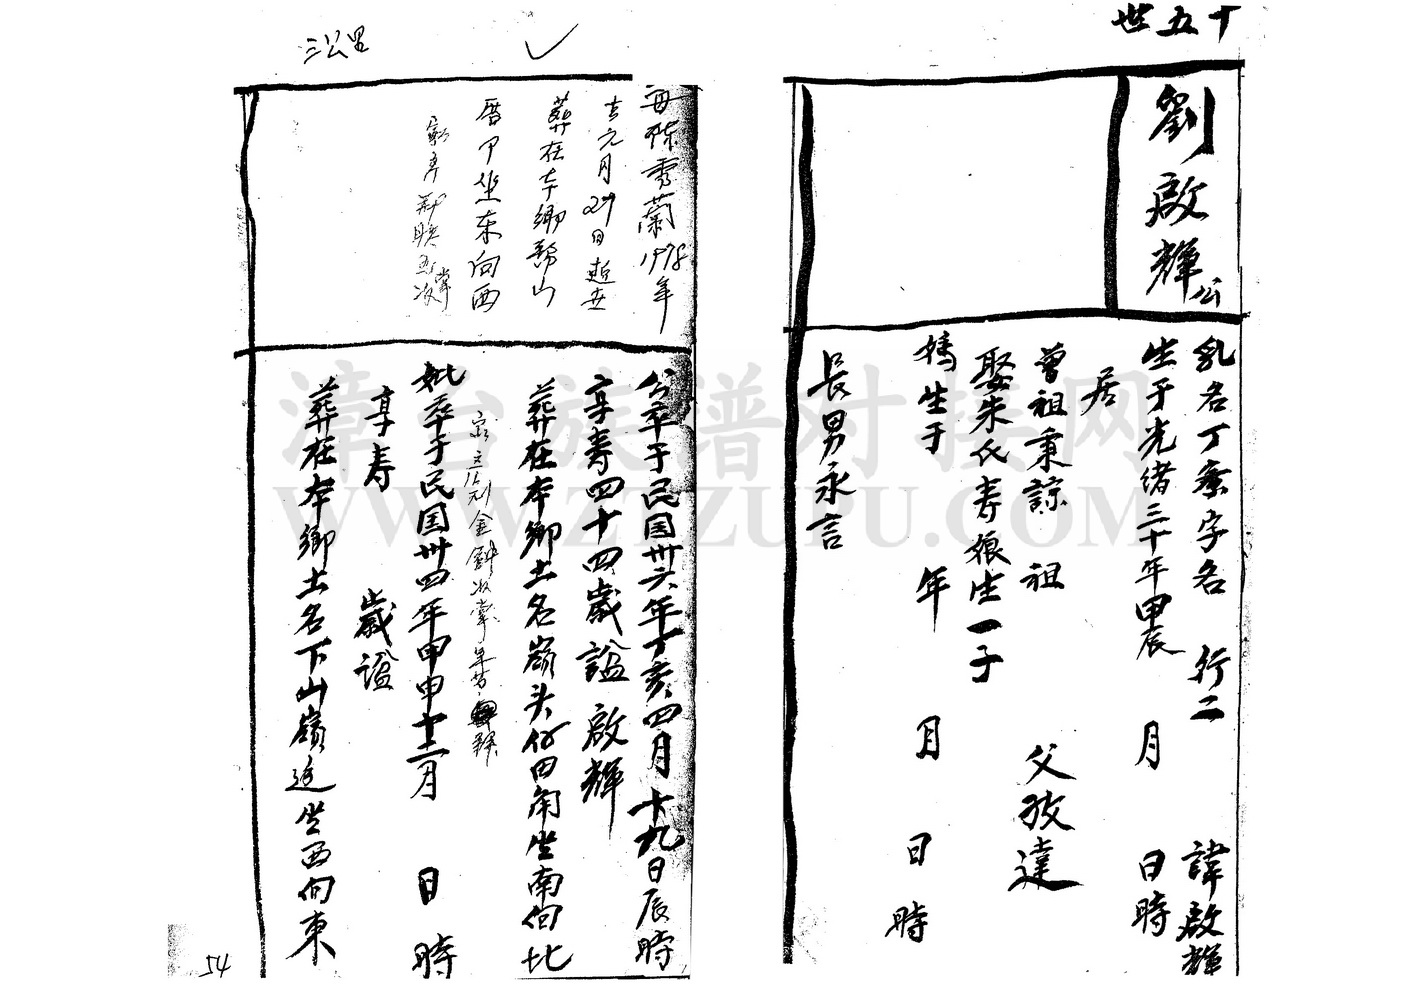 十五世
劉啟輝公
乳名丁 字名 行二 諱啟輝
生于光緒三十年甲辰 月 日時
居
曾祖秉諒 祖 父孜達
娶朱氏寿娘生一子
媽生于 年 月 日 時
長男永言
三公里
母陈秀蘭1978年
古元月29日逝世
葬在本鄉 山
厝 坐东向西
公卒于民国卅六年丁亥四月十九日辰時
享寿四十四歲諡啟輝
葬在本鄉土名嶺头仔田角坐南向北
妣卒于民国卅四年甲申十二月 日 時
享寿 歲諡
葬在本鄉土名下山嶺 坐西向東
54
漳台族谱对接网
WWW.ZTZUPU.COM